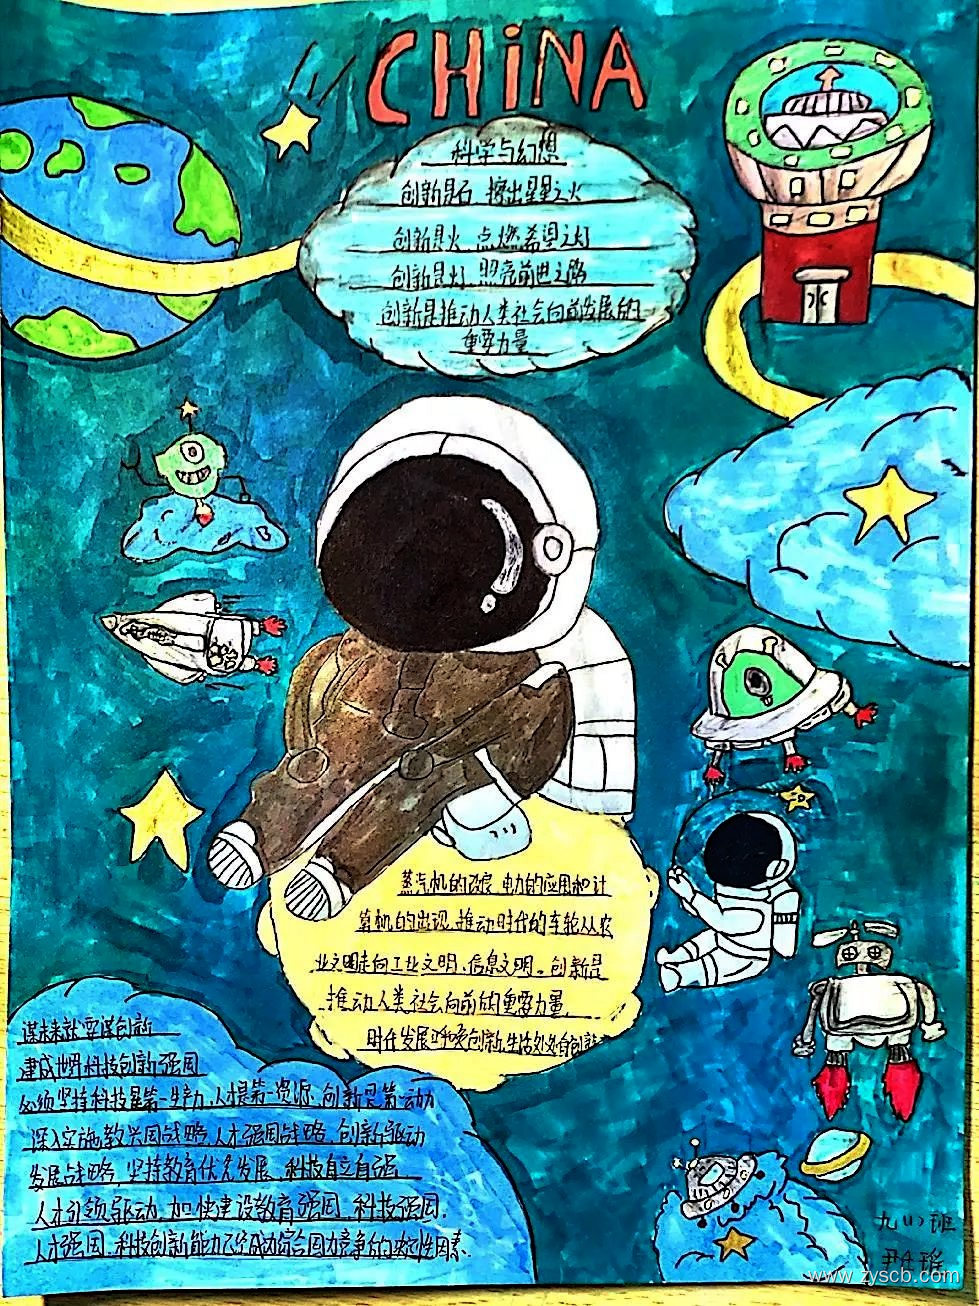 CHINA
科学与幻想
创新是石 擦出星星之火
创新是火 点燃希望之灯
创新是灯 照亮前进之路
创新是推动人类社会向前发展的
重要力量
蒸汽机的改良 电力的应用和计
算机的出现,推动时代的车轮从农
业文明走向工业文明、信息文明。创新是
推动人类社会向前的重要力量,
时代发展呼唤创新,生活处处有创新
谋未来就要谋创新
建成世界科技创新强国
必须坚持科技是第一生产力,人才是第一资源,创新是第一动力
深入实施教兴国战略,人才强国战略,创新驱动
发展战略,坚持教育优先发展、科技自立自强
人才引领驱动,加快建设教育强国、科技强国,
人才强国,科技创新能力已经成为综合国力竞争的决定性因素.
九(1)班
www.zyscb.com